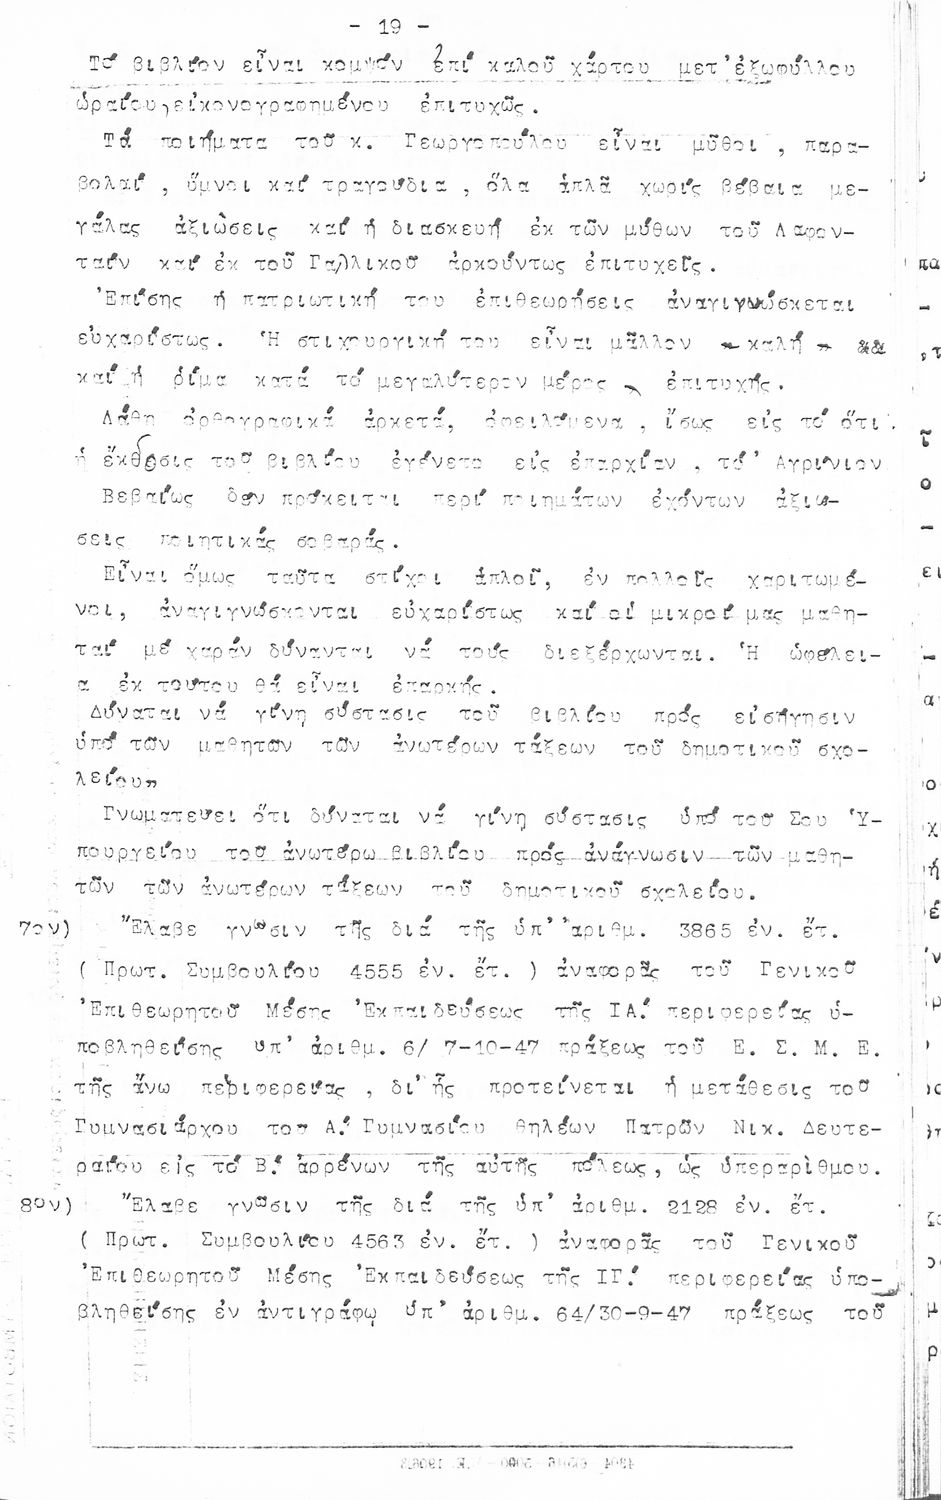 - 19 -
Τό βιβλίον εἶναι κομψόν ἐπί καλοῦ χάρτου μετ' ἐξωφύλλου
ὡραίου, εἰκονογραφημένου ἐπιτυχῶς.
Τά ποιήματα τοῦ κ. Γεωργοπούλου εἶναι μῦθοι , παρα-
βολαί , ὕμνοι καί τραγούδια , ὅλα ἁπλᾶ χωρίς βέβαια με-
γάλας ἀξιώσεις καί ἡ διασκευή ἐκ τῶν μύθων τοῦ Λαφον-
ταίν καί ἐκ τοῦ Γαλλικοῦ ἀρκούντως ἐπιτυχεῖς.
Ἐπίσης ἡ πατριωτική του ἐπιθεωρήσεις ἀναγιγνώσκεται
εὐχαρίστως. Ἡ στιχουργική του εἶναι μᾶλλον καλή
καί ἡ ρίμα κατά τό μεγαλύτερον μέρος ἐπιτυχής.
Λάθη ὀρθογραφικά ἀρκετά, ὀφειλόμενα , ἴσως εἰς τό ὅτι
ἡ ἔκδοσις τοῦ βιβλίου ἐγένετο εἰς ἐπαρχίαν , τό' Αγρινιον
Βεβαίως δέν πρόκειται περί ποιημάτων ἐχόντων ἀξιώ-
σεις ποιητικάς σοβαράς.
Εἶναι ὅμως ταῦτα στίχοι ἁπλοῖ, ἐν πολλοῖς χαριτωμέ-
νοι, ἀναγιγνώσκονται εὐχαρίστως καί οἱ μικροί μας μαθη-
ταί μέ χαράν δύνανται νά τούς διεξέρχωνται. Ἡ ὠφέλει-
α ἐκ τούτου θά εἶναι ἐπαρκής.
Δύναται νά γίνῃ σύστασις τοῦ βιβλίου πρός εἰσήγησιν
ὑπό τῶν μαθητῶν τῶν ἀνωτέρων τάξεων τοῦ δημοτικοῦ σχο-
λείου"
Γνωματεύει ὅτι δύναται νά γίνῃ σύστασις ὑπό τοῦ Σου Ὑ-
πουργείου τοῦ ἀνωτέρω βιβλίου πρός ἀνάγνωσιν τῶν μαθη-
τῶν τῶν ἀνωτέρων τάξεων τοῦ δημοτικοῦ σχολείου.
7ον) Ἔλαβε γνῶσιν τῆς διά τῆς ὑπ' ἀριθμ. 3865 ἐν. ἔτ.
( Πρωτ. Συμβουλίου 4555 ἐν. ἔτ. ) ἀναφορᾶς τοῦ Γενικοῦ
Ἐπιθεωρητοῦ Μέσης Ἐκπαιδεύσεως τῆς ΙΑ! περιφερείας ὑ-
ποβληθείσης ὑπ' ἀριθμ. 6/ 7-10-47 πράξεως τοῦ Ε. Σ. Μ. Ε.
τῆς ἄνω περιφερείας , δι' ἧς προτείνεται ἡ μετάθεσις τοῦ
Γυμνασιάρχου τοῦ Α! Γυμνασίου θηλέων Πατρῶν Νικ. Δευτε-
ραίου εἰς τό Β! ἀρρένων τῆς αὐτῆς πόλεως, ὡς ὑπεραρίθμου.
8ον) Ἔλαβε γνῶσιν τῆς διά τῆς ὑπ' ἀριθμ. 2128 ἐν. ἔτ.
( Πρωτ. Συμβουλίου 4563 ἐν. ἔτ. ) ἀναφορᾶς τοῦ Γενικοῦ
Ἐπιθεωρητοῦ Μέσης Ἐκπαιδεύσεως τῆς ΙΓ! περιφερείας ὑπο-
βληθείσης ἐν ἀντιγράφῳ ὑπ' ἀριθμ. 64/30-9-47 πράξεως τοῦ